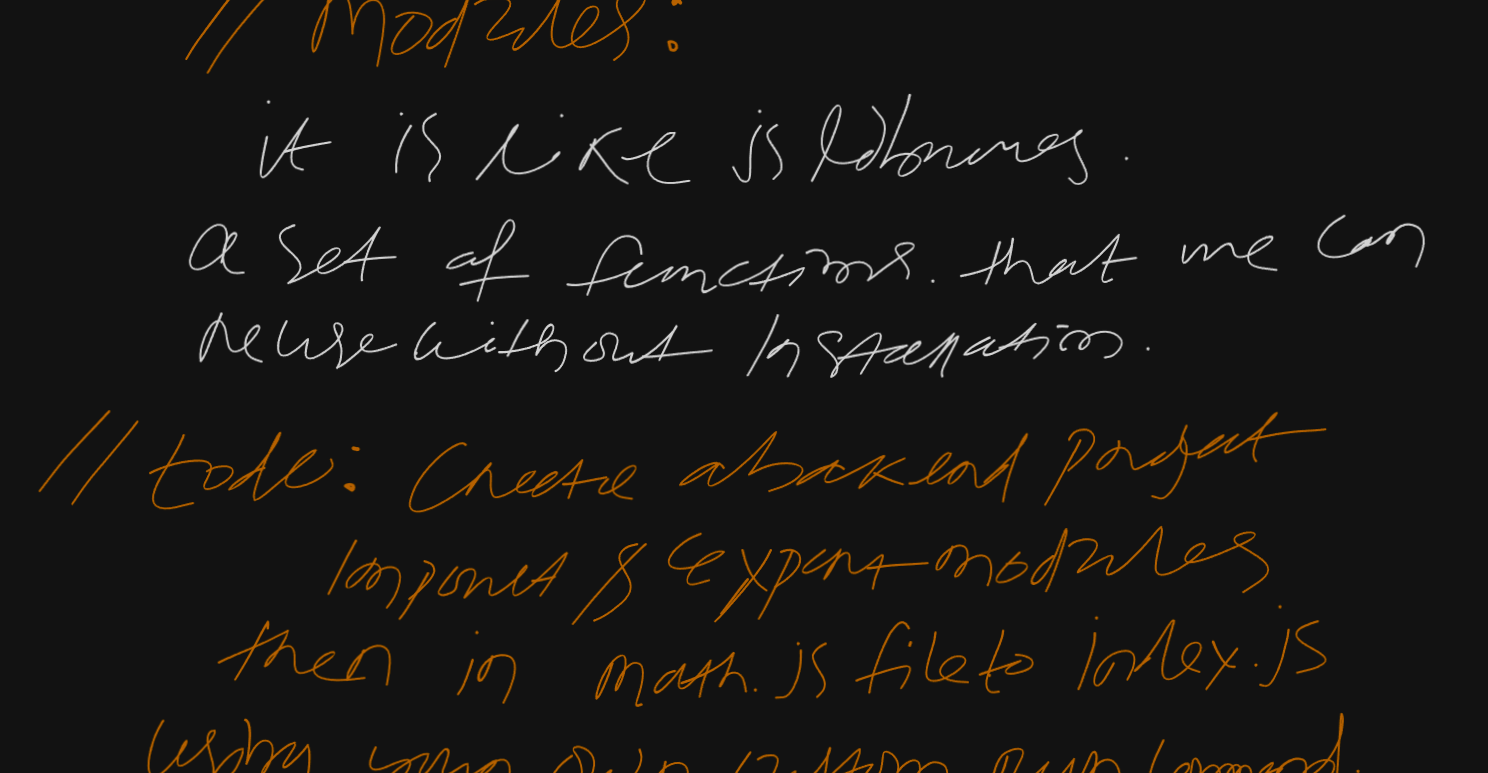 // Modules:
it is like js libraries.
a set of functions. that we can
reuse without Installation.
// todo: Create a backend project
Import & Export modules
then in math.js file to index.js
using your own custom run command.